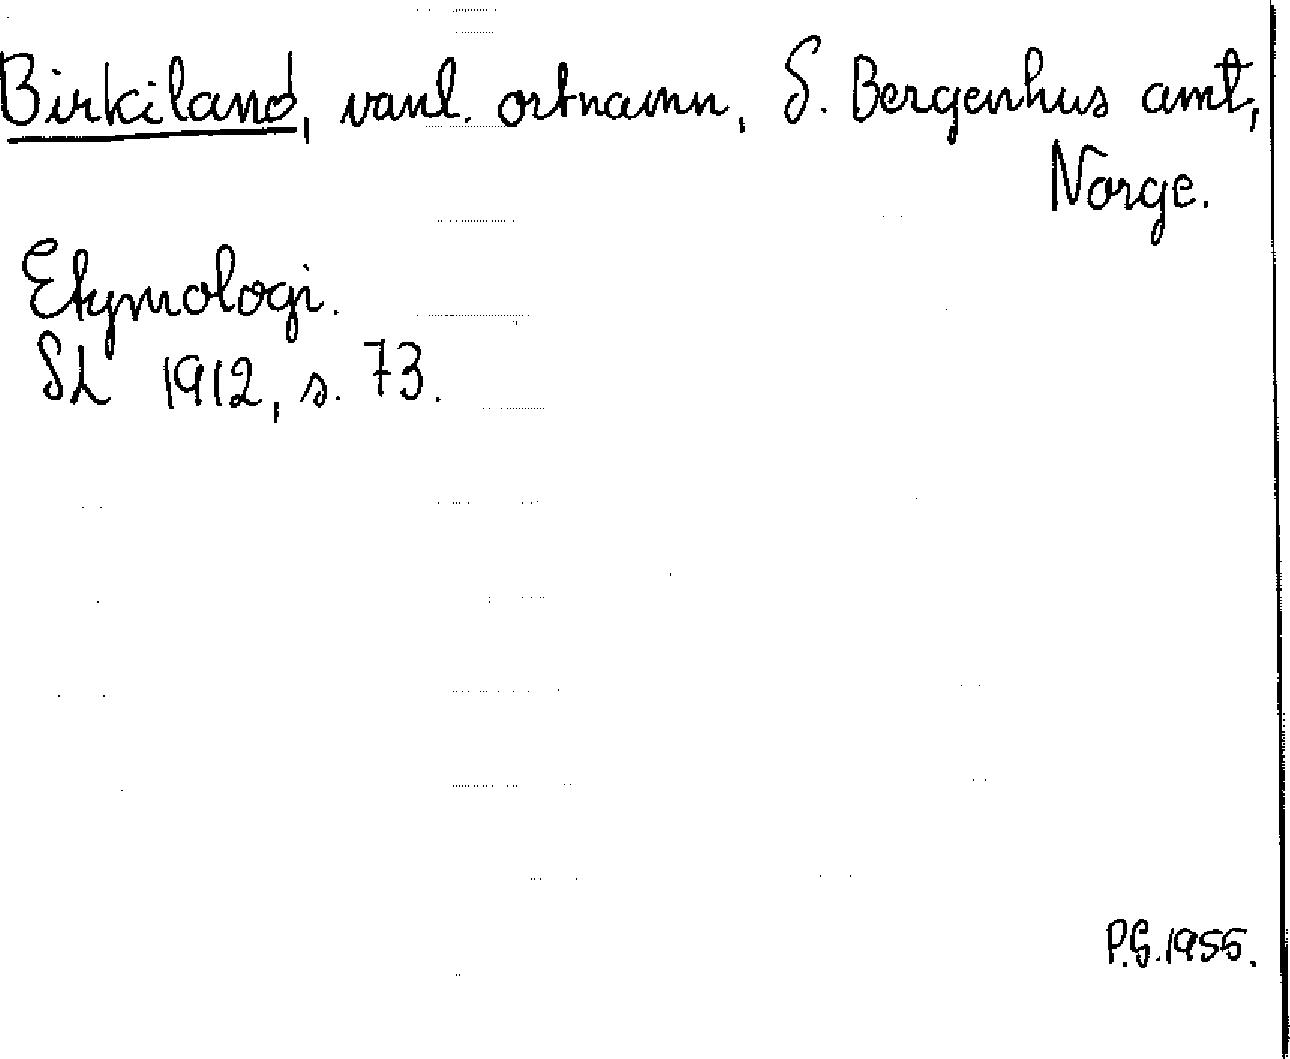 Birkiland, vanl. ortnamn, S. Bergenhus amt,
Norge.
Etymologi.
SL 1912, s. 73.
P.G. 1955.